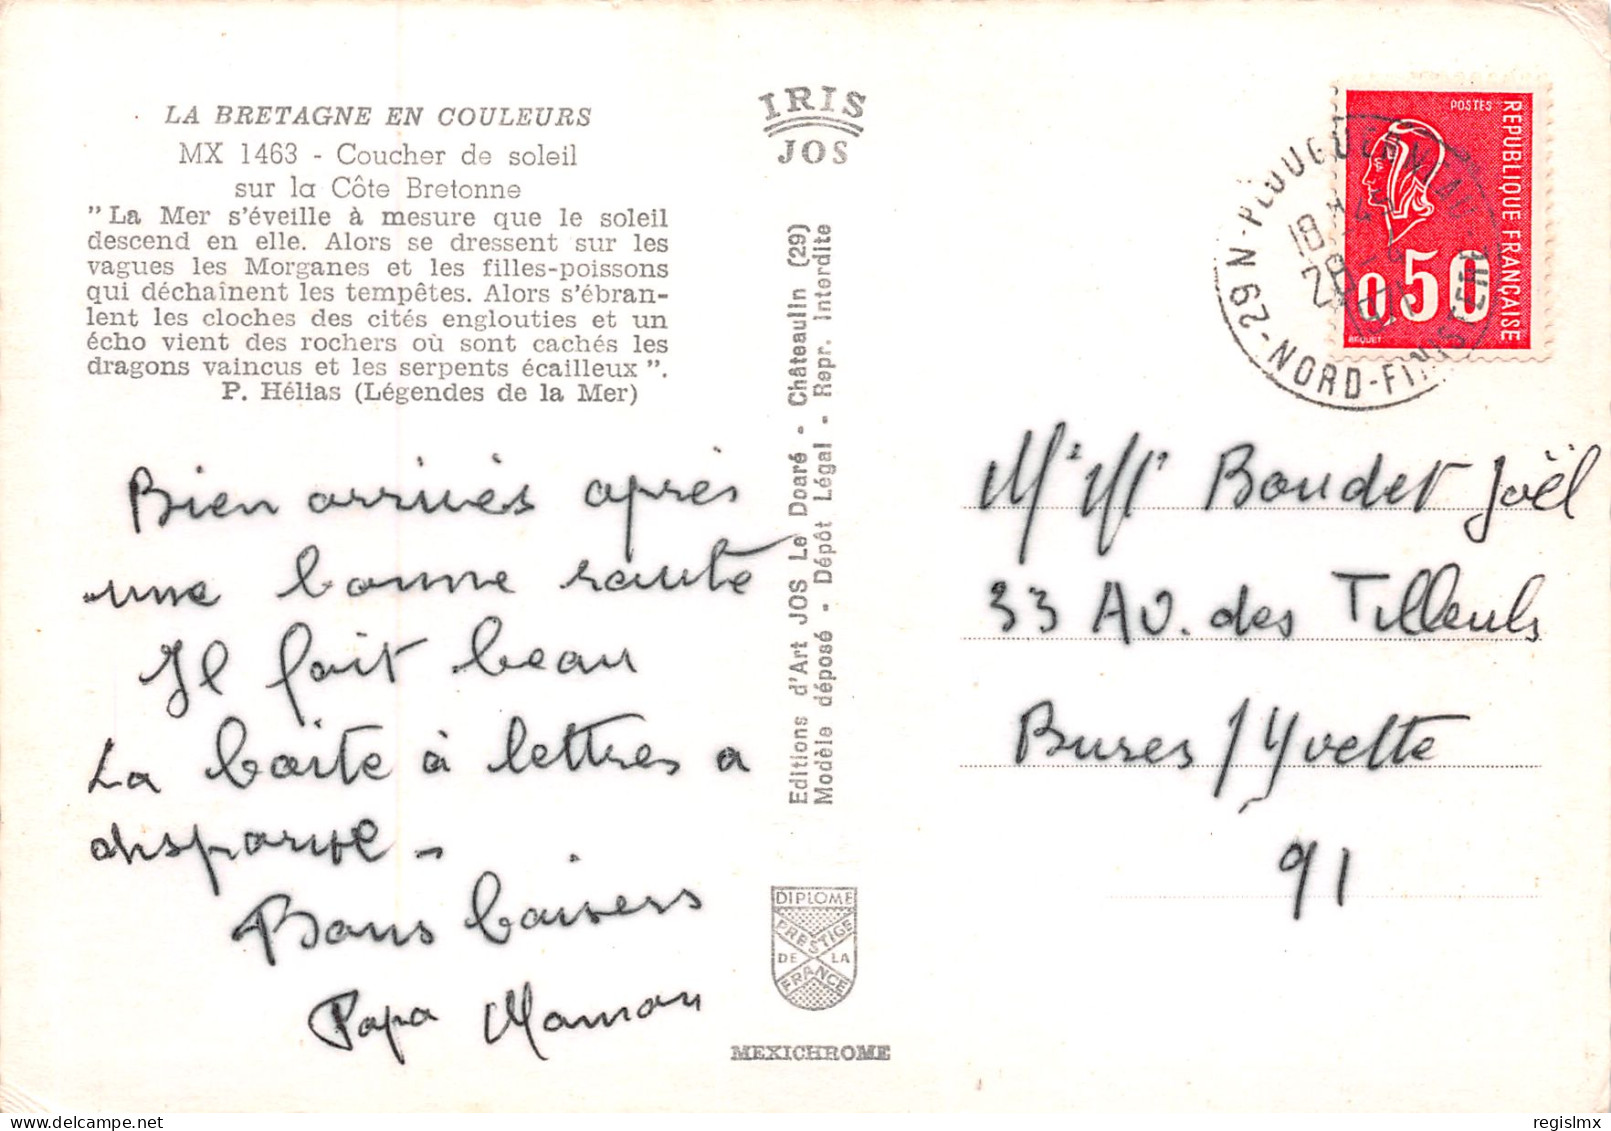 LA BRETAGNE EN COULEURS
MX 1463 - Coucher de soleil
sur la Côte Bretonne
"La Mer s'éveille à mesure que le soleil
descend en elle. Alors se dressent sur les
vagues les Morganes et les filles-poissons
qui déchaînent les tempêtes. Alors s'ébran-
lent les cloches des cités englouties et un
écho vient des rochers où sont cachés les
dragons vaincus et les serpents écailleux".
P. Hélias (Légendes de la Mer)
Bien arrivés après
une bonne route
Il fait beau
La boîte à lettres a
disparue -
Bons baisers
Papa Maman
IRIS
JOS
Editions d'Art JOS Le Doaré - Châteaulin (29)
Modèle déposé - Dépôt Légal - Repr. Interdite
DIPLOME
PRESTIGE
DE LA
FRANCE
MEXICHROME
POSTES
REPUBLIQUE FRANÇAISE
0,50
BEQUET
29 N-PLOUGUERNEAU
18 H
29-NORD-FINISTERE
Mr Mme Boudet Joël
33 Av. des Tilleuls
Bures / Yvette
91
regislmx